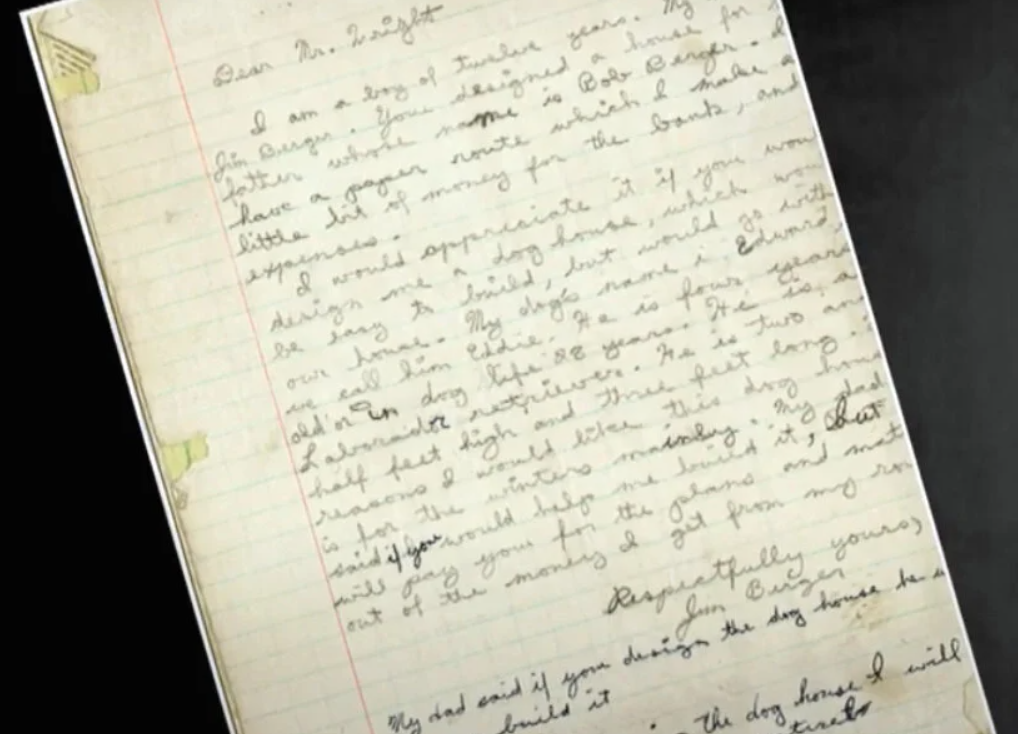 Dear Mr. Wright
I am a boy of twelve years. My
Jim Berger. You designed a house for
father whose name is Bob Berger. I
have a paper route which I make a
little bit of money for the bank, and
expenses.
I would appreciate it if you wou
design me a dog house, which wou
be easy to build, but would go with
our house. My dog's name is Edward,
we call him Eddie. He is four years
old or in dog life 28 years. He is a
Labrador retriever. He is two an
half feet high and three feet long.
reasons I would like this dog hous
is for the winters mainly. My dad
said if you would help me build it, but
will pay you for the plans and mat
out of the money I get from my ro
Respectfully yours,
Jim Berger
My dad said if you design the dog house he
build it
The dog house I will